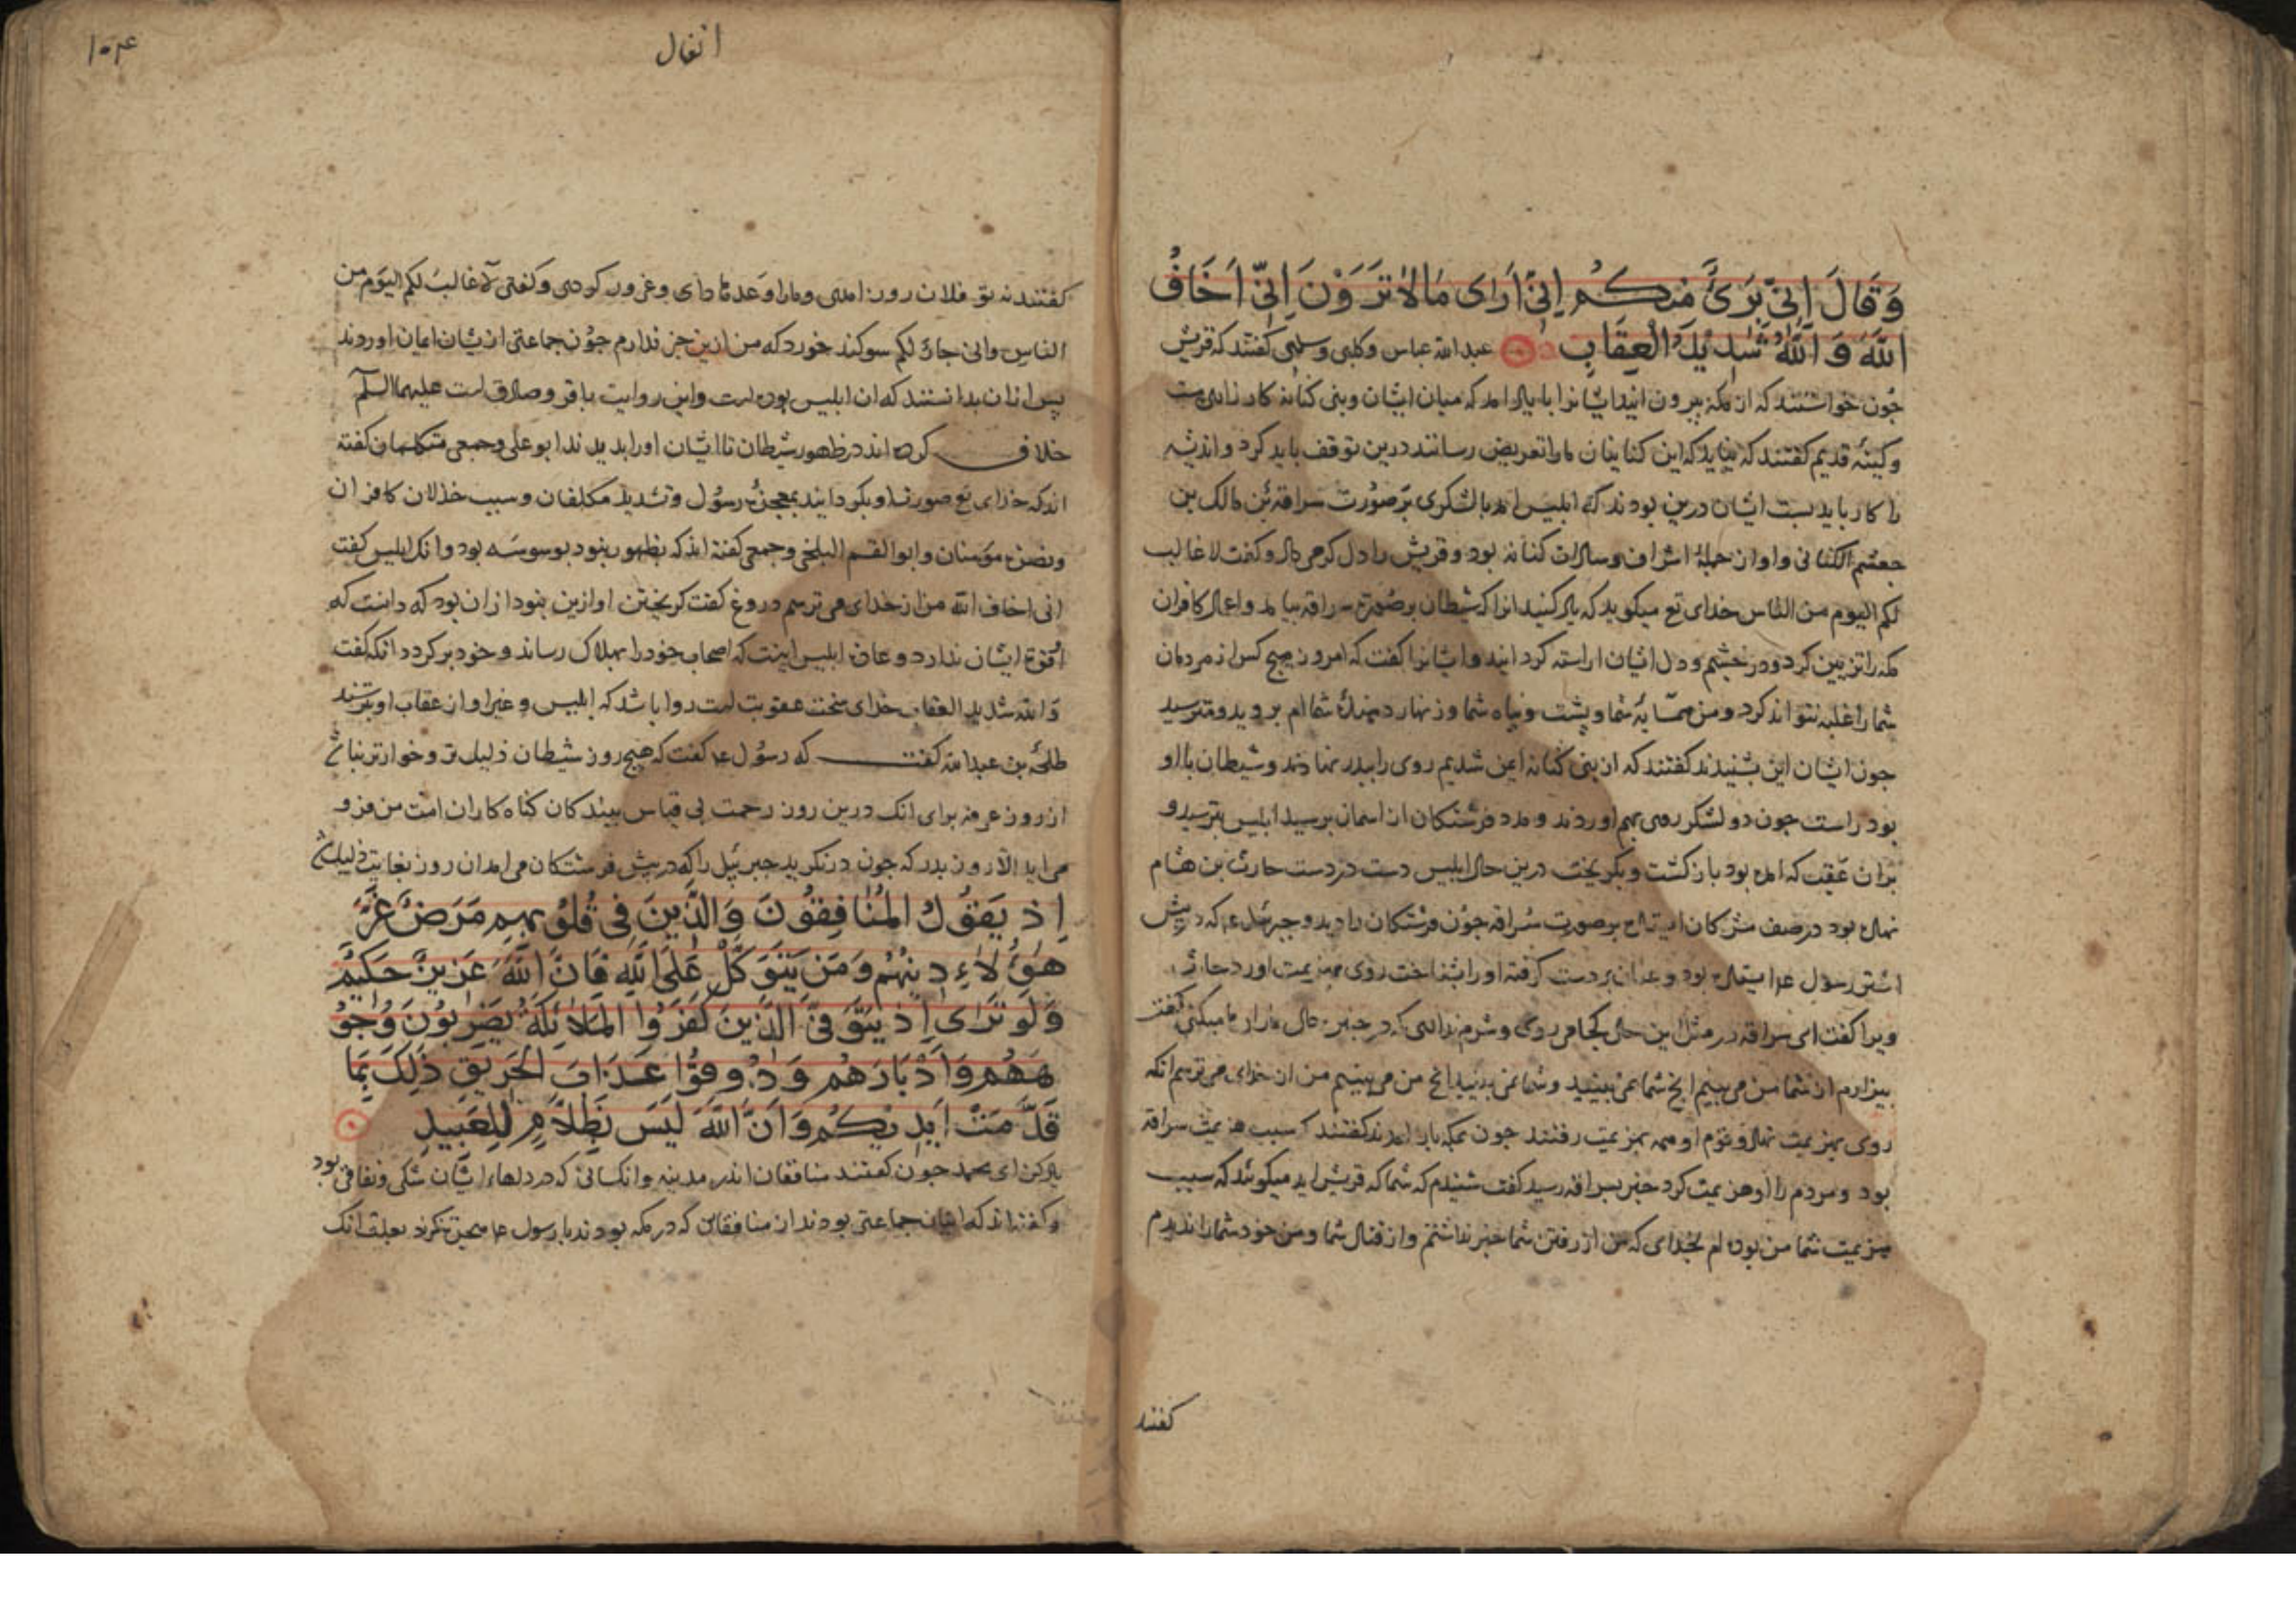 وَقَالَ اِنّی بَرَیٌٔ مِنکُم اِنّی اَرَای مَالَا تَرَوْنَ اِنّی اَخَافُ
اللّٰهَ وَ اللّٰهُ شَدِیدُ العِقَابِ عبدالله عباس وکلبی و کفتند که قریش
جون خواستند که از مکه بیرون ایند ایشانرا با یاد امد که میان ایشان وبنی کنانه کارزاری
وکینهٔ قدیم کفتند که نباید که این کنانیان مارا تعریض رسانند درین توقف باید کرد و اندیشه
را کار باید بست ایشان درین بودند که ابلیس امد بالشکری بر صورت سراقة بن مالک بن
جعشم الکنانی واو از جملهٔ اشراف وسادات کنانه بود وقریش را دل کرمی داد وکفت لا غالب
لکم الیوم من الناس خدای تع میکوید که یاد کنید انرا که شیطان بر صورة سراقه بیامد واعمال کافران
مکه را تزیین کرد ودر چشم ودل ایشان اراسته کردانید وایشانرا کفت که امروز هیچ کس از مردمان
شما را غلبه نتواند کرد ومن همسایهٔ شما وپشت وپناه شما وزنهار دهندهٔ شماام بروید ومترسید
جون ایشان این بشنیدند کفتند که از بنی کنانه ایمن شدیم روی را ببدر نهادند وشیطان باا و
بود راست جون دو لشکر روی بهم اوردند ومدد فرشتکان از اسمان برسید ابلیس بترسید و
بران عقبت که امده بود باز کشت وبکریخت درین حال ابلیس دست در دست حارث بن هشام
نهاده بود در صف مشرکان ایستاده بر صورت سراقه جون فرشتکان را دید وجبرئیل ع که در پیش
اشتر رسول ع ایستاده بود وعنان بر دست کرفته اورا بشناخت روی بهزیمت اورد حارث
ویرا کفت ای سراقه در مثل این حال کجا می روی وشرم نداری که در جنین حال مارا رها میکنی کفت
بیزارم از شما من می بینم انج شما نمی بینید وشما نمی بینید انج من می بینم من از خدای می ترسم انکه
روی بهزیمت نهاد وقوم او همه بهزیمت رفتند جون بمکه باز امدند کفتند که سبب هزیمت سراقه
بود ومردم را او هزیمت کرد خبر بسراقه رسید کفت شنیدم که شما که قریش اید میکوئید که سبب
هزیمت شما من بوده ام بخدای که من از رفتن شما خبر نداشتم واز قتال شما ومن خود شما را ندیدم
کفتند
انفال
کفتند نه تو فلان روز امدی ومارا وعدها دادی وغرور کردی وکفتی لا غالب لکم الیوم من
الناس وانی جار لکم سوکند خورد که من ازین خبر ندارم جون جماعتی ازیشان ایمان اوردند
پس ازان بدانستند که ان ابلیس بوده است واین روایت باقر وصادق است علیهما السلم
خلاف کرده اند در ظهور شیطان تا ایشان اورا بدیدند ابو علی وجمعی متکلمان کفته
اند که خدای تع صورت او بکردانید بمعجزهٔ رسول وتشدید مکلفان وسبب خذلان کافران
ونصرت مؤمنان وابو القسم البلخی وجمعی کفته اند که بظهور نبود بوسوسه بود وانک ابلیس کفت
انی اخاف الله من از خدای می ترسم دروغ کفت کریختن او ازین نبود ازان بود که دانست که
قوة ایشان ندارد وعادت ابلیس اینست که اصحاب خود را بهلاک رساند وخود بر کردد انکه کفت
وَالله شدید العقاب خدای سخت عقوبت است روا باشد که ابلیس وغیر او از عقاب او بترسند
طلحة بن عبدالله کفت که رسول ع کفت که هیچ روز شیطان ذلیل تر وخوارتر نباشد
از روز عرفه برای انک درین روز رحمت بی قیاس بیند کان کناه کاران امت من فرو
می اید الّا روز بدر که جون در نکرید جبرئیل را که در پیش فرشتکان می امد ان روز بغایت ذلیل شد
اِذ یَقُولُ المُنَافِقُونَ وَالَّذِینَ فِی قُلُوبِهِم مَرَضٌ غَرَّ
هٰؤُلَاءِ دِینُهُم وَمَن یَتَوَکَّل عَلَی اللّٰهِ فَاِنَّ اللّٰهَ عَزِیزٌ حَکِیمٌ
وَلَو تَرَای اِذ یَتَوَفَّی الَّذِینَ کَفَرُوا المَلَائِکَةُ یَضرِبُونَ وُجُو
هَهُم وَاَدْبَارَهُم وَذُوقُوا عَذَابَ الحَرِیقِ ذٰلِکَ بِمَا
قَدَّمَتْ اَیدِیکُم وَاَنَّ اللّٰهَ لَیسَ بِظَلَّامٍ لِلعَبِیدِ
یاد کن ای محمد جون کفتند منافقان اندر مدینه وانکسانی که در دلهاء ایشان شکی ونفاقی بود
وکفته اند که ایشان جماعتی بودند از منافقان که در مکه بودند با رسول ع هجرت نکرند بعلت انک